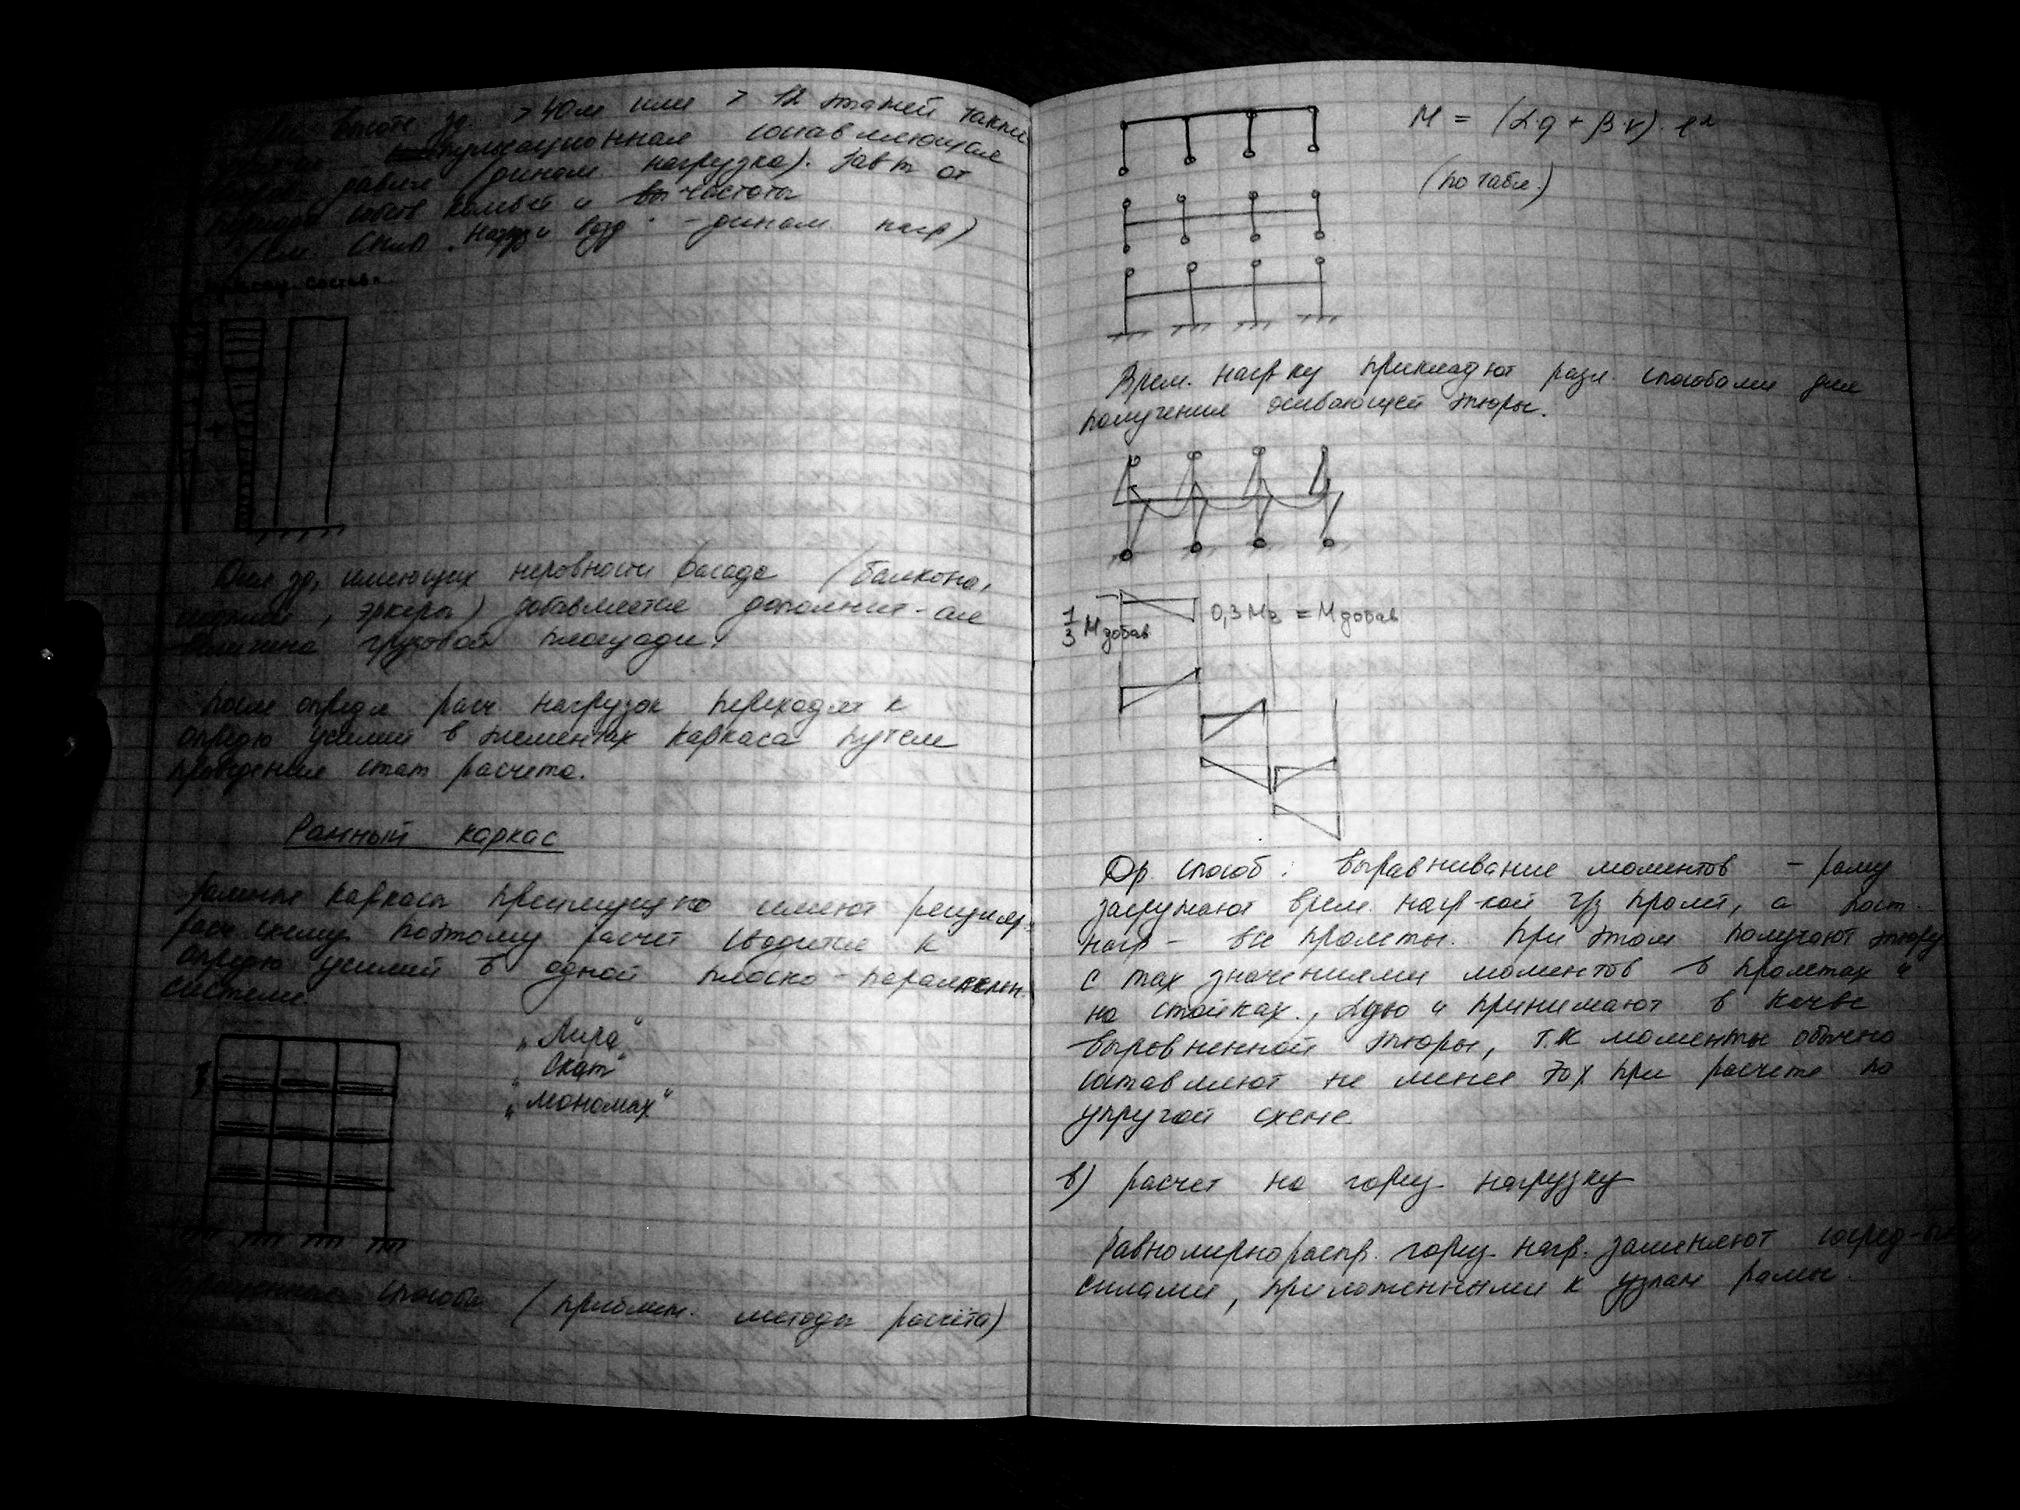 высоте зд. > 40м или > 12 этажей также
пульсационная составляющая
(динам. нагрузка). Зав т от
собств колеб и частоты
(см. СНиП „Нагр и возд" - динам нагр)
состав.
Для зд, имеющих неровности фасада (балконы,
, эркеры) добавляется дополнит-ая
величина грузовой площади.
После опредл расч нагрузок переходят к
опредю усилий в элементах каркаса путем
проведения стат расчета.
Рамный каркас
Рамные каркасы преимущно имеют регуляр.
расч схему поэтому расчет сводится к
опредю усилий в одной плоско-параллелен.
системе
„Лира"
„Скат"
„Мономах"
способы (приближ. методы расчёта)
M = (α·g + β·v)·l²
(по табл.)
Врем. нагр-ку прикладют разл. способами для
получения огибающей эпюры.
1/3 M добав
0,3 M₂ = M добав
Др. способ: выравнивание моментов - раму
загружают врем. нагр-кой ч/з пролёт, а пост.
нагр - все пролеты. При этом получают эпюру
с max значениями моментов в пролетах и
на стойках., и принимают в кач-ве
выровненной эпюры, т.к моменты обычно
составляют не менее 70% при расчете по
упругой схеме
в) расчет на гориз нагрузку
Равномернораспр. гориз. нагр. заменяют сосред-
силами, приложенными к узлам рамы.